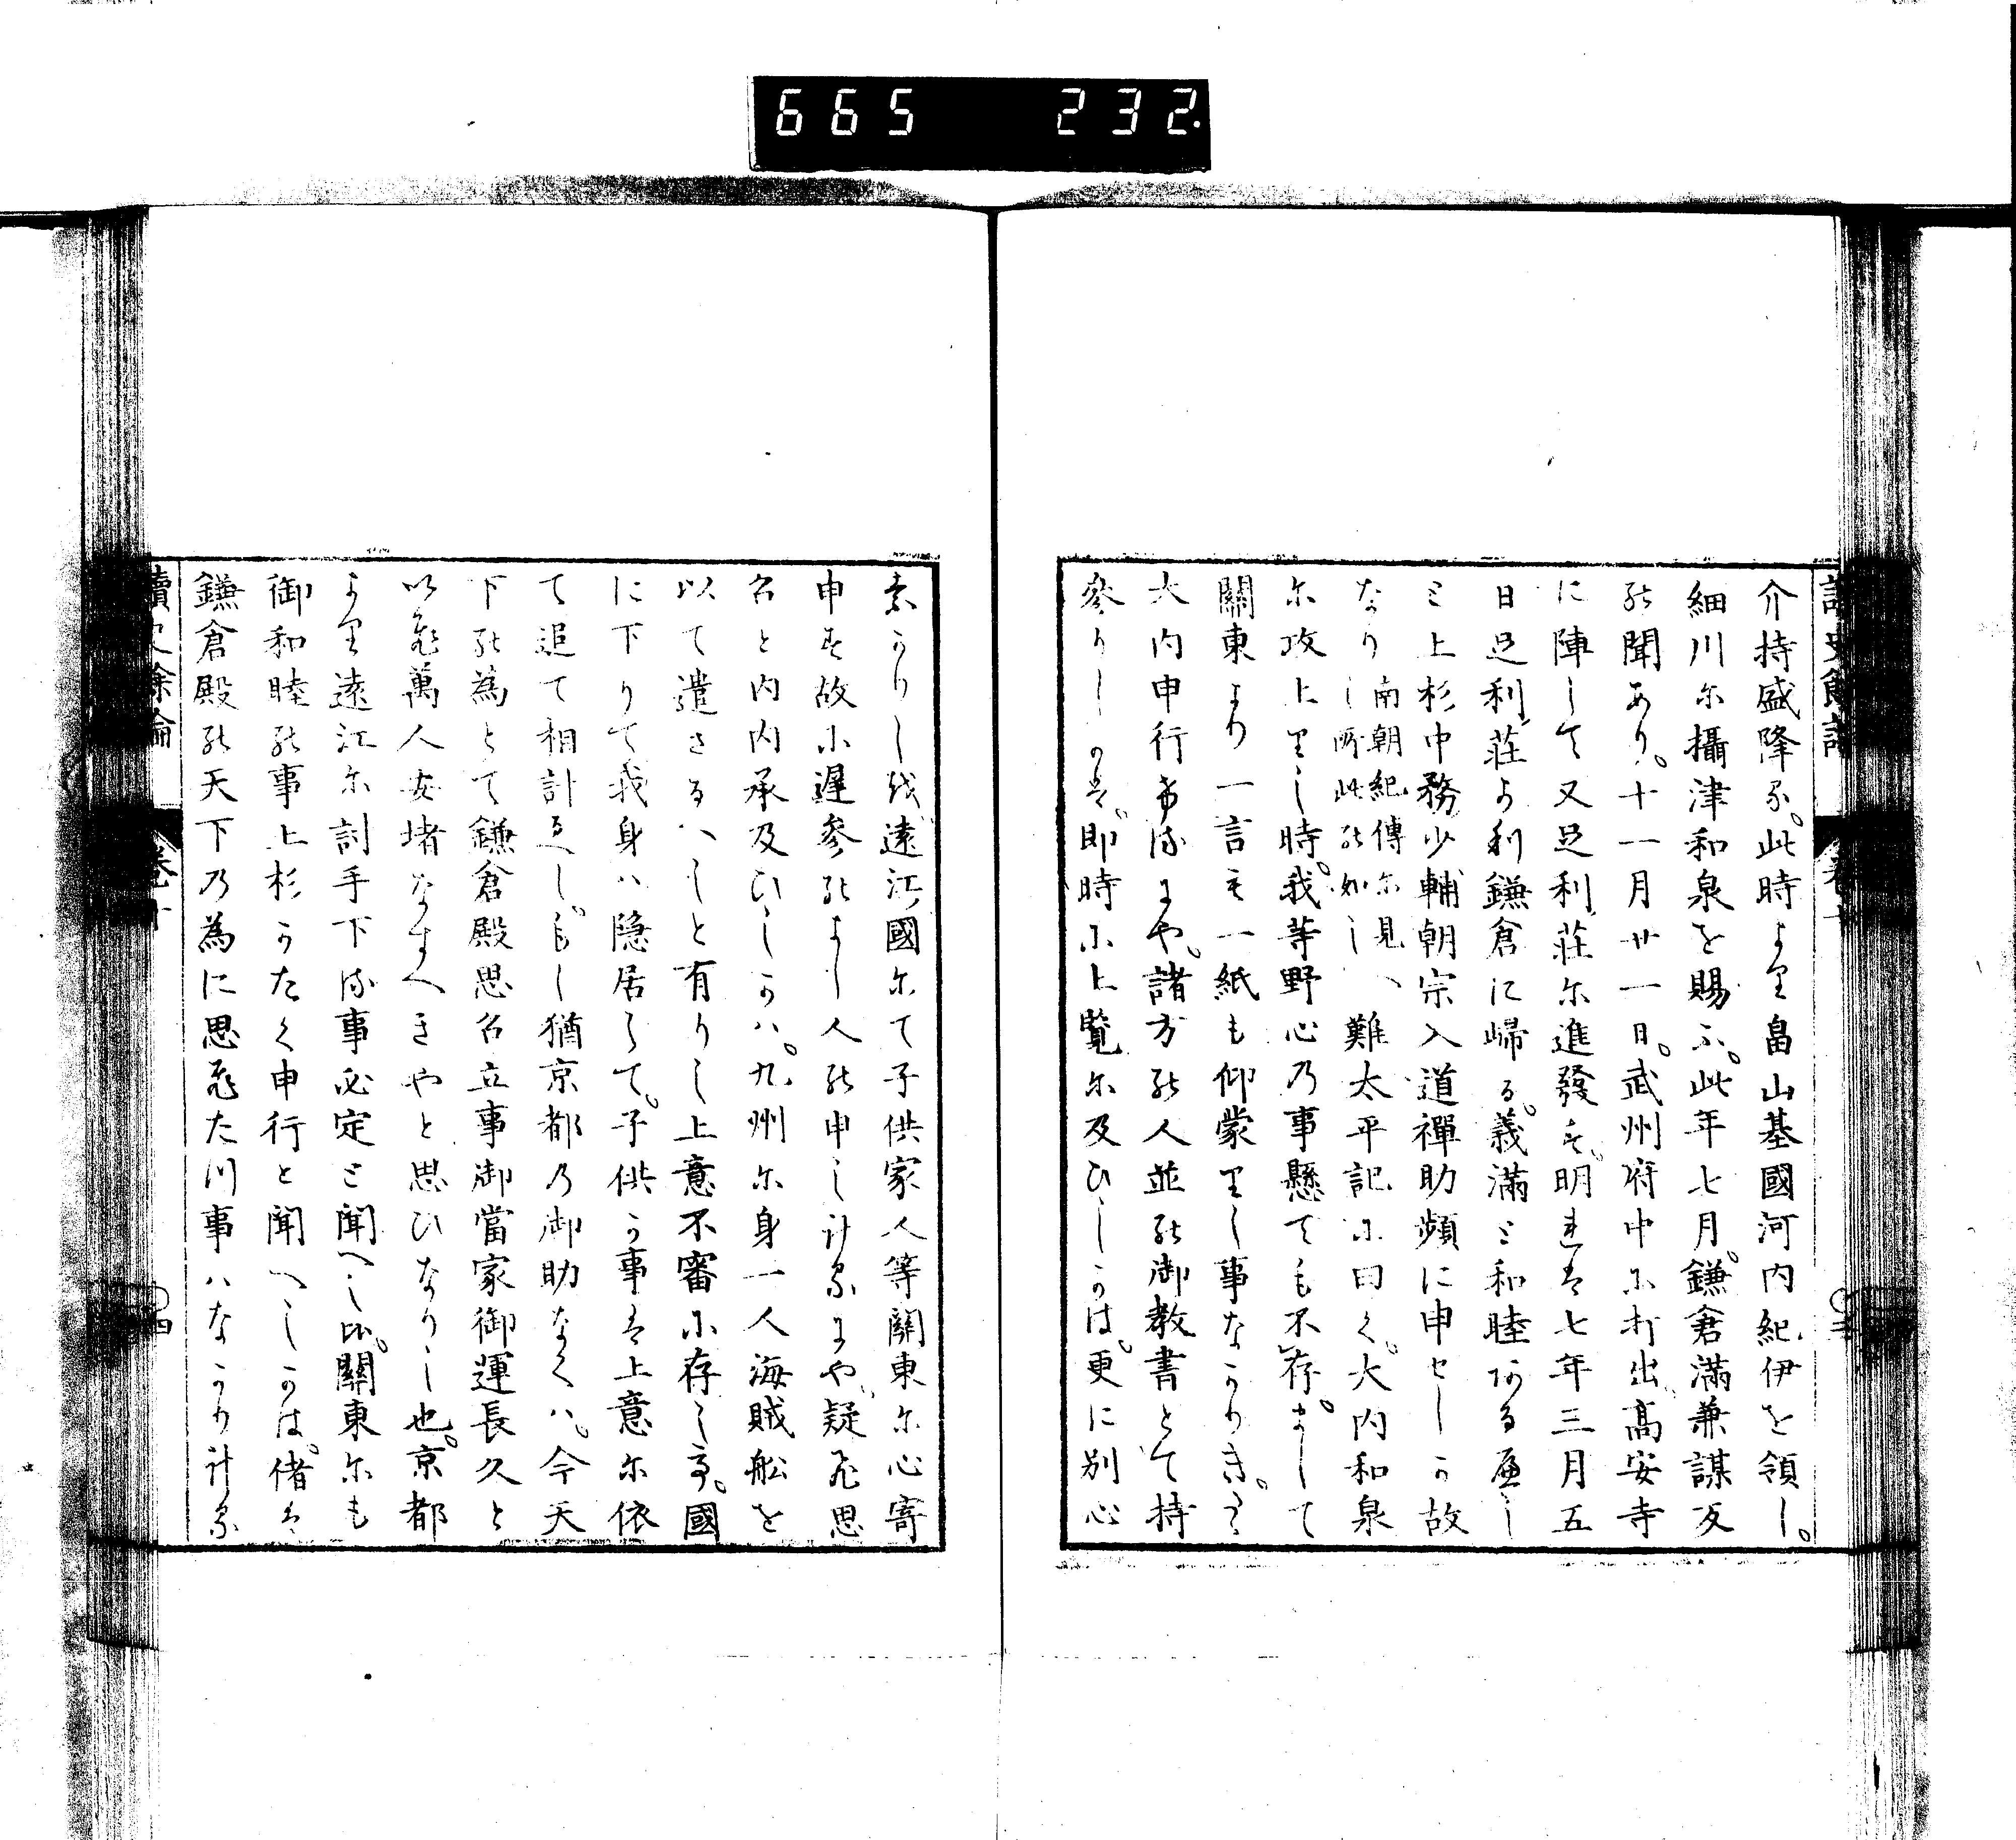 665 232.
介持盛降る。此時より畠山基國河内紀伊を領し。
細川に攝津和泉を賜ふ。此年七月。鎌倉滿兼謀反
の聞あり。十一月廿一日。武州府中に打出。高安寺
に陣して又足利莊に進發す。明れは七年三月五
日足利莊より利鎌倉に歸る。義滿と和睦ある
と上杉中務少輔朝宗入道禪助頻に申せしか故
なり南朝紀傳に見へし所此の如し難太平記に曰く。大内和泉
に攻上りし時。我等野心の事懸ても不存。まして
關東より一言も一紙も仰蒙りし事なかりき。
大内申行けるにや。諸方の人並の御教書とて持
參りしかは。即時に上覽に及ひしかは。更に別心
素かりしを遠江國にて子供家人等關東に心寄
申す故に遲參のよし人の申し計るにや。疑ひ思
召と内内承及ひしかハ。九州に身一人海賊舩を
以て遣さるへしと有りし上意不審に存し
に下りて我身ハ隱居して。子供か事は上意に依
て追て相計るへし。もし猶京都の御助なくハ。今天
下の為とて鎌倉殿思召立事御當家御運長久と
以て萬人安堵なすへきやと思ひなりし也。京都
より遠江に討手下る事必定と聞へし比。關東にも
御和睦の事上杉かたく申行と聞へしかは。偖は
鎌倉殿の天下の為に思召たつ事ハなかり計る
讀史餘論 卷十